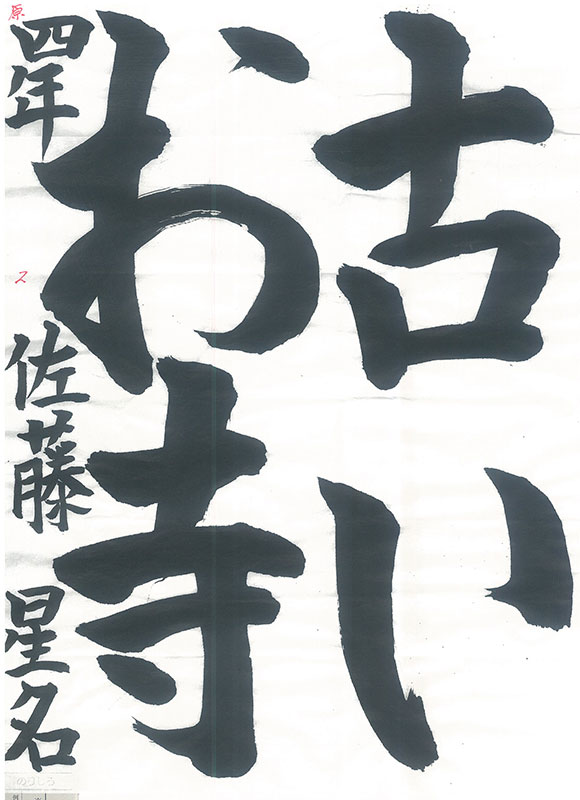 古い
お寺
四年 佐藤 星名
原
ス
のりしろ